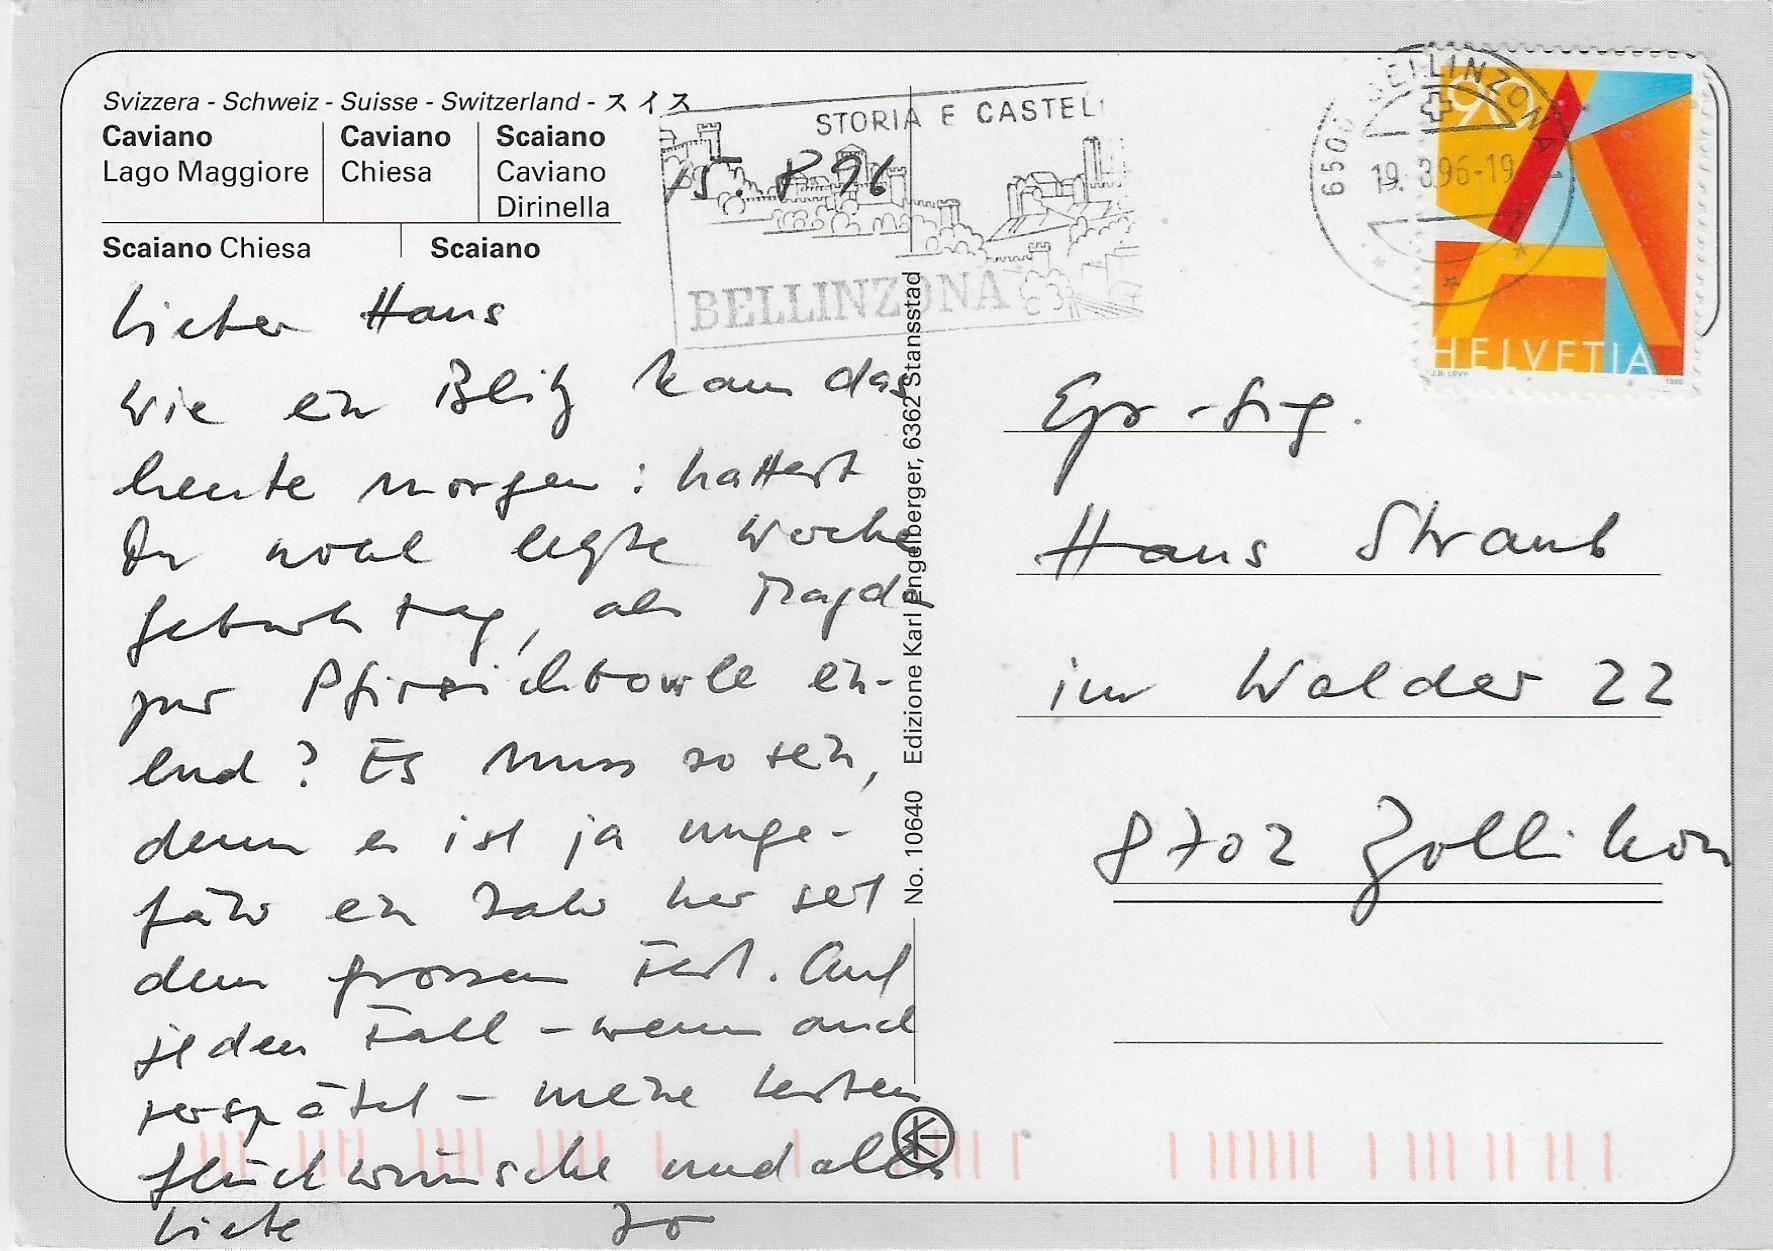 Svizzera - Schweiz - Suisse - Switzerland - スイス
Caviano
Lago Maggiore
Caviano
Chiesa
Scaiano
Caviano
Dirinella
Scaiano Chiesa
Scaiano
STORIA E CASTEL
BELLINZONA
15. 8 96
6500 BELLINZONA 1
19. 8.96-19
90
HELVETIA
J.B. LEVY
1995
Lieber Hans
Wie ein Blitz kam das
heute morgen: hattest
Du wohl letzte Woche
Geburtstag, als Magda
zur Pfirsichbowle ein-
lud? Es muss so sein,
denn es ist ja unge-
fähr ein Jahr her seit
dem grossen Fest. Auf
jeden Fall - wenn auch
verspätet - meine besten
Glückwünsche und alles
Liebe Jo
No. 10640 Edizione Karl Engelberger, 6362 Stansstad
K
Hans Straub
im Walder 22
8702 Zollikon